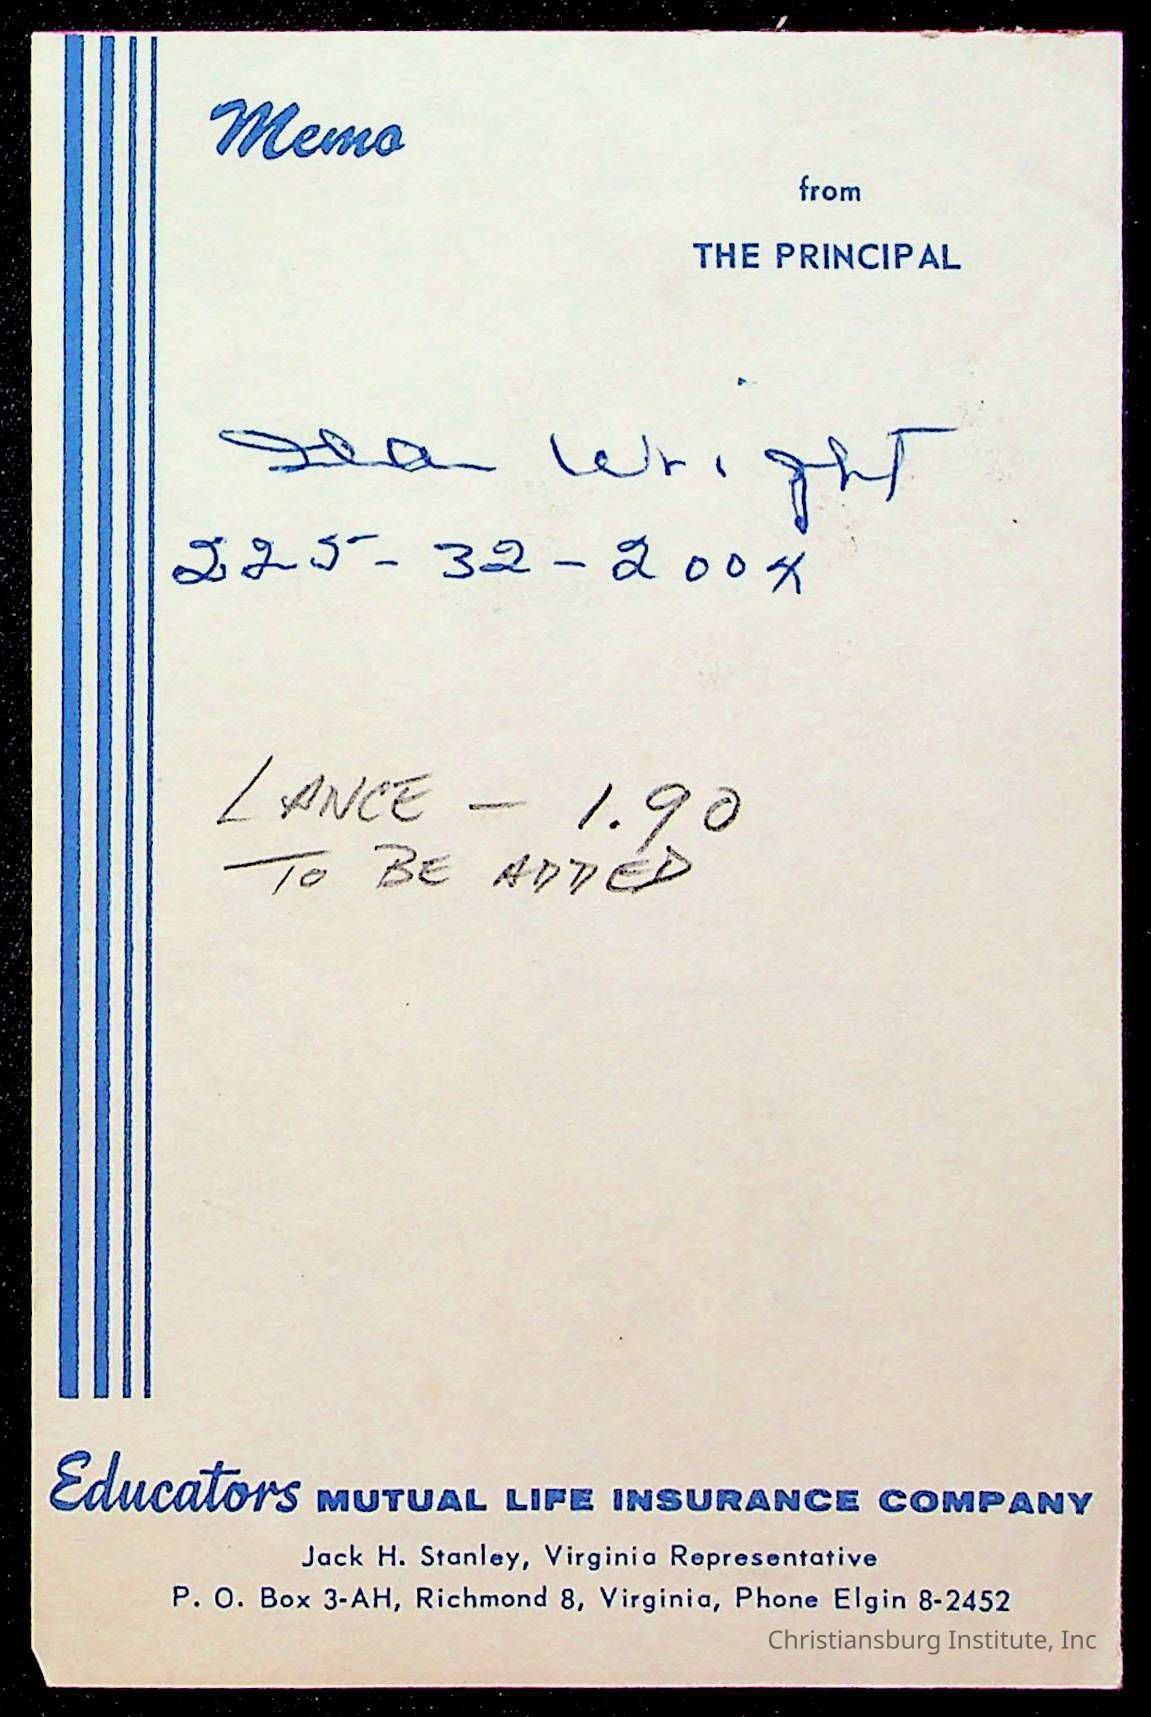 Memo
from
THE PRINCIPAL
Wright
225-32-2004
LANCE - 1.90
TO BE ADDED
Educators MUTUAL LIFE INSURANCE COMPANY
Jack H. Stanley, Virginia Representative
P. O. Box 3-AH, Richmond 8, Virginia, Phone Elgin 8-2452
Christiansburg Institute, Inc